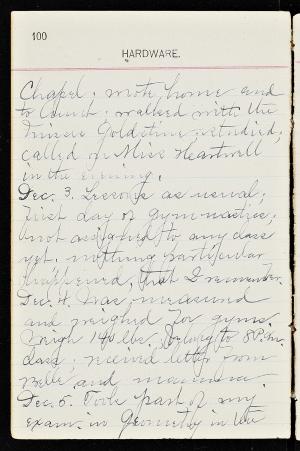 100
HARDWARE.
Chapel; wrote home and
to Count; walked with the
Misses Goldstine; studied;
called on Miss Heartwell
in the evening.
Dec. 3. Lessons as usual;
First day of gymnastics;
not assigned to any class
yet. nothing particular
happened, that I remember.
Dec. 4. Was measured
and weighed for gym.
Weigh 140 lbs. Belong to 8 P.M.
class; received letter from
Belle and mamma.
Dec. 5. Took part of my
exam. in Geometry in the